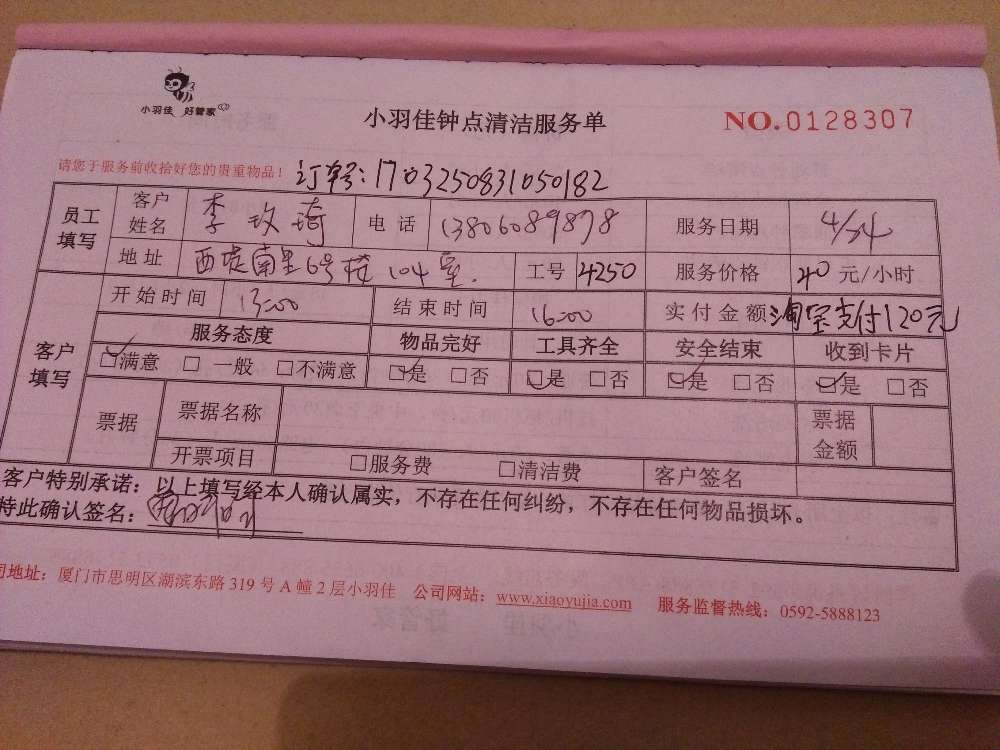 小羽佳 好管家
小羽佳钟点清洁服务单
NO.0128307
请您于服务前收拾好您的贵重物品！ 订单号：1703250831050182
员工填写 客户姓名 李玫琦 电话 13806089878 服务日期 4/24
地址 西堤南里6号楼104室. 工号 4250 服务价格 40 元/小时
客户填写 开始时间 13:00 结束时间 16:00 实付金额 淘宝支付120元
服务态度 物品完好 工具齐全 安全结束 收到卡片
☑满意 □一般 □不满意 ☑是 □否 ☑是 □否 ☑是 □否 ☑是 □否
票据 票据名称 票据金额
开票项目 □服务费 □清洁费 客户签名
客户特别承诺：以上填写经本人确认属实，不存在任何纠纷，不存在任何物品损坏。
特此确认签名：
司地址：厦门市思明区湖滨东路319号A幢2层小羽佳 公司网站：www.xiaoyujia.com 服务监督热线：0592-5888123